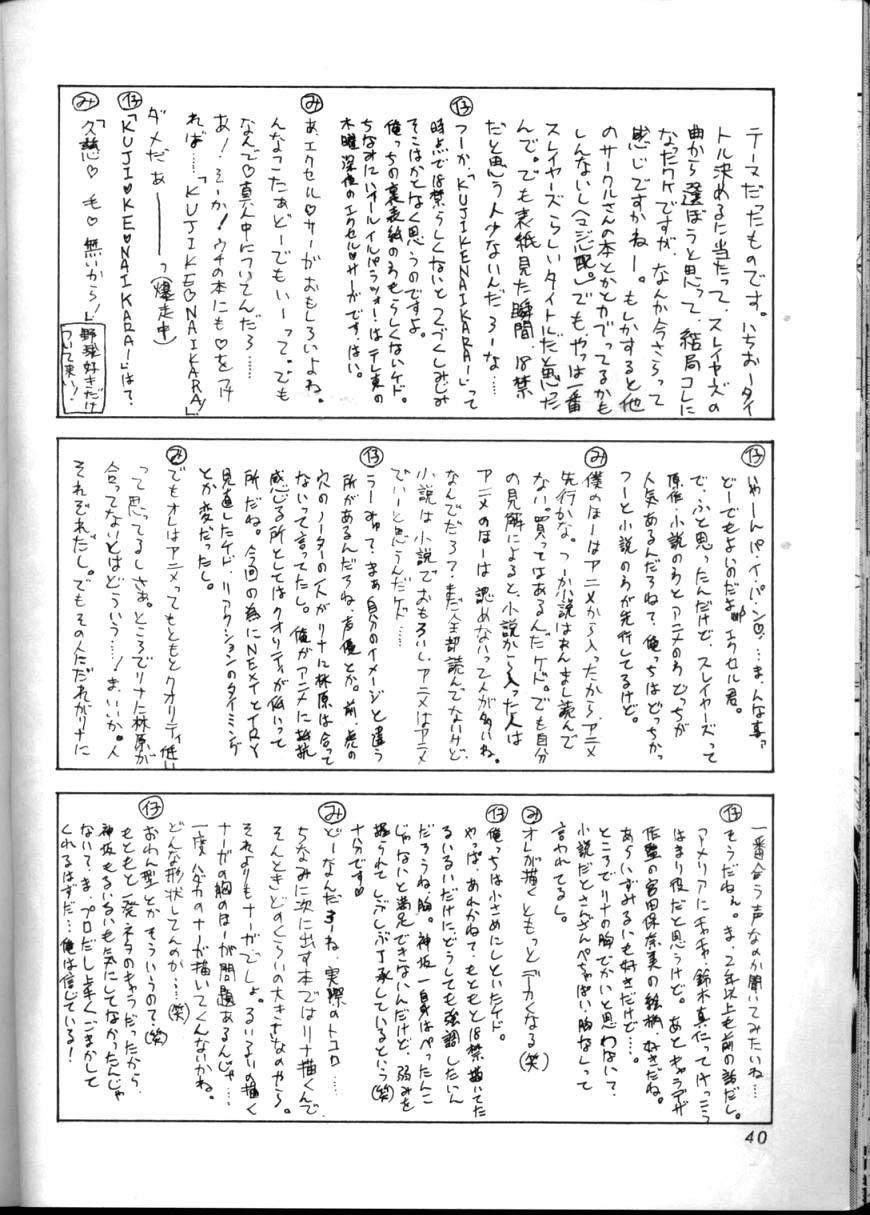 テーマだったものです。いちおータイ
トル決めるに当たって、スレイヤーズの
曲から選ぼうと思って、結局コレに
なったワケですが、なんか今さらって
感じですかねー。もしかすると他
のサークルさんの本とかとカブってるかも
しんないし(マジ心配)。でも、やっぱ一番
スレイヤーズらしいタイトルだと思った
んで。でも表紙見た瞬間 18禁
だと思う人少ないんだろーな……
仔 つーか、「KUJIKENAIKARA!」って
時点で18禁らしくないとつくづくしみじみ
そこはかとなく思うのですよ。
俺っちの裏表紙のわもらしくないケド。
ちなみに「オールイルパラッツォ!」はテレ東の
木曜深夜のエクセル♡サーガです、はい。
み あ、エクセル♡サーガおもしろいよね。
んなこたぁどーでもいーって。でも
なんで♡真ん中についてんだろ……
あ!そーか!ウチの本にも♡をつけ
れば……「KUJIKE♡NAIKARA!」
ダメだぁーーーっ(爆走中)
仔 「KUJI♡KE♡NAIKARA!」は?
み 「久慈♡毛♡無いから!」
野球好きだけ
ついて来い!
仔 いやーん、パ・イ・パ・ン♡?……ま、んな事
どーでもよいのだよ エクセル君。
で、ふと思ったんだけど、スレイヤーズって
原作・小説のわとアニメのわ どっちが
人気あるんだろね?俺っちはどっちかっ
つーと小説のわが先行してるけど。
み 僕のほーはアニメから入ったから、アニメ
先行かな。つーか小説はあんまし読んで
ない。買ってはあるんだケド。でも自分
の見解によると、小説から入った人は
アニメのほーは認めないって人が多いね。
なんでだろ?まだ全部読んでないけど、
小説は小説でおもろいし、アニメはアニメ
でいーと思うんだケド……
仔 うーみゅ?まぁ自分のイメージと違う
所があるんだろね、声優とか。前、虎の
穴のノーターの人がリナに林原は合って
ないって言ってたし。俺がアニメに抵抗
感じる所としてはクオリティが低いって
所だね。今回の為にNEXTとTRY
見直したケド、リアクションのタイミング
とか変だったし。
み でもオレはアニメってもともとクオリティ低い
って思ってるしさぁ。ところでリナに林原が
合ってないとはどういう……!ま、いいか。人
それぞれだし。でもその人だれがリナに
一番合う声なのか聞いてみたいね…
仔 そうだねぇ。ま、2年以上も前の話だし。
アメリアにチャチャ、鈴木真仁ってけっこう
はまり役だと思うけど。あとキャラデザ
作監の宮田保奈美の絵柄、好きだね。
あらいずみるいも好きだけど…。
ところでリナの胸でかいと思わない?
小説だとさんざんぺちゃぱい胸なしって
言われてるし。
み オレが描くともっとデカくなる(笑)
仔 俺っちは小さめにしといたケド。
やっぱ、あれかねて、もともと18禁描いてた
るいるいだけに、どうしても強調したいん
だろうね、胸。神坂一自身はぺったんこ
じゃないと満足できないんだけど、弱みを
握られてしぶしぶ了承しているという(笑)
十分です♡
み どーなんだろーね、実際のトコロ……
ちなみに次に出す本ではリナ描くんで、
そんときどのくらいの大きさなのやら。
それよりもナーガでしょ。るいるいの描く
ナーガの胸のほーが問題あるんじゃ……
一度ハダカのナーガ描いてくんないかね。
どんな形状してんのか……(笑)
仔 おわん型とかそういうので(笑)
もともと一発ネタのキャラだったから、
神坂もるいるいも気にしてなかったんじゃ
ないて、ま、プロだし上手くごまかして
くれるはずだ…俺は信じている!
40